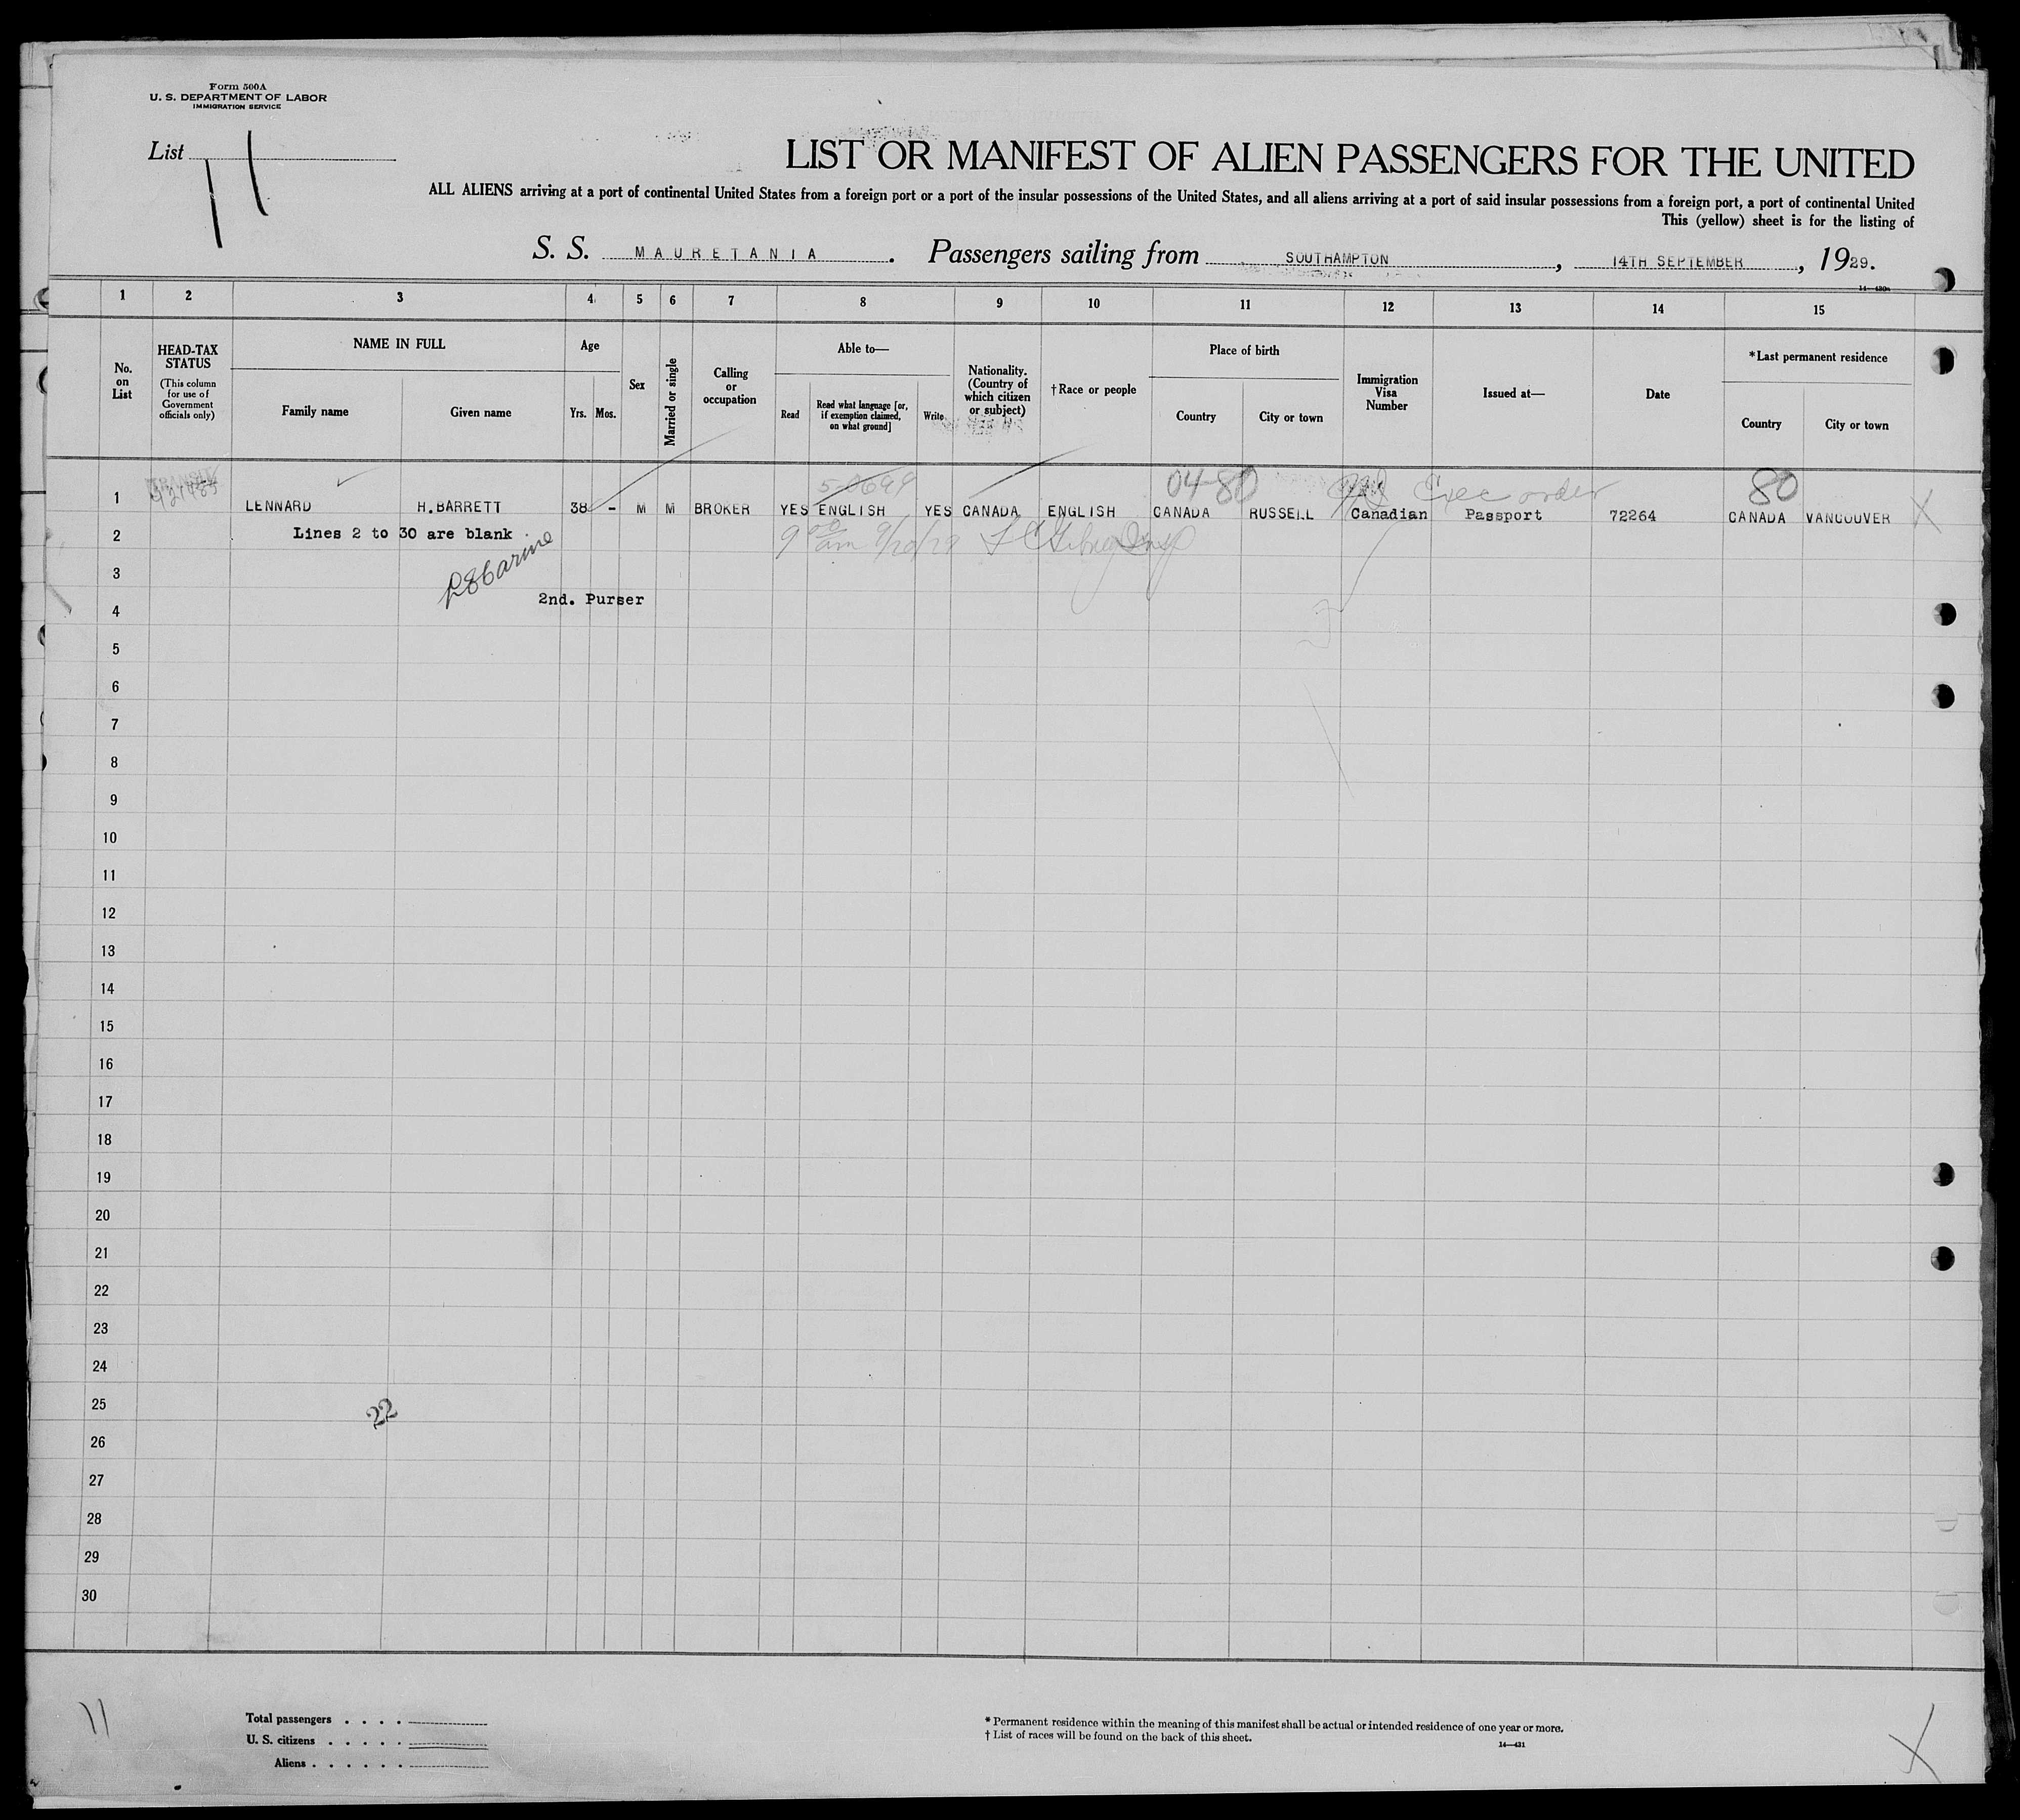 Form 500A
U. S. DEPARTMENT OF LABOR
IMMIGRATION SERVICE
List 11
LIST OR MANIFEST OF ALIEN PASSENGERS FOR THE UNITED
ALL ALIENS arriving at a port of continental United States from a foreign port or a port of the insular possessions of the United States, and all aliens arriving at a port of said insular possessions from a foreign port, a port of continental United
This (yellow) sheet is for the listing of
S. S. MAURETANIA. Passengers sailing from SOUTHAMPTON, 14TH SEPTEMBER, 1929.
1 2 3 4 5 6 7 8 9 10 11 12 13 14 15
No. on List
HEAD-TAX STATUS (This column for use of Government officials only)
NAME IN FULL
Family name Given name
Age
Yrs. Mos.
Sex
Married or single
Calling or occupation
Able to—
Read Read what language [or, if exemption claimed, on what ground] Write
Nationality. (Country of which citizen or subject)
†Race or people
Place of birth
Country City or town
Immigration Visa Number
Issued at—
Date
*Last permanent residence
Country City or town
TRANSIT 5-0699 04-80 Exec order 80
1 LENNARD H.BARRETT 38 - M M BROKER YES ENGLISH YES CANADA ENGLISH CANADA RUSSELL Canadian Passport 72264 CANADA VANCOUVER X
2 Lines 2 to 30 are blank 9 00 am 9/20/29
3
2nd. Purser
4
5
6
7
8
9
10
11
12
13
14
15
16
17
18
19
20
21
22
23
24
25
22
26
27
28
29
30
11
Total passengers . . . .
U. S. citizens . . . . .
Aliens . . . . . .
* Permanent residence within the meaning of this manifest shall be actual or intended residence of one year or more.
† List of races will be found on the back of this sheet.
14—431
X